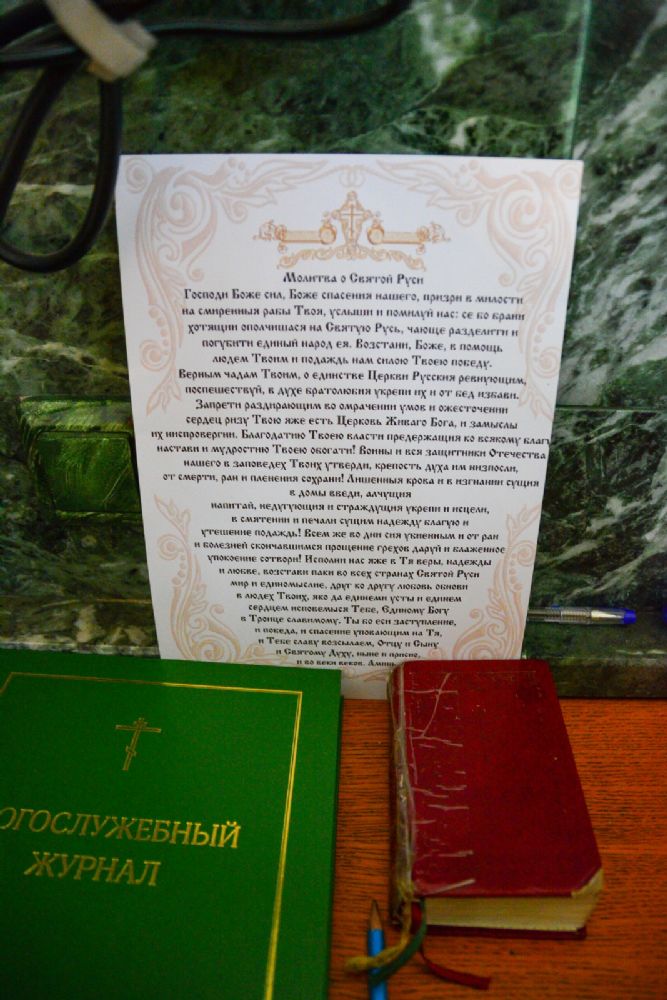 Молитва о Святой Руси
Господи Боже сил, Боже спасения нашего, призри в милости
на смиренныя рабы Твоя, услыши и помилуй нас: се бо брани
хотящии ополчишася на Святую Русь, чающе разделити и
погубити единый народ ея. Возстани, Боже, в помощь
людем Твоим и подаждь нам силою Твоею победу.
Верным чадам Твоим, о единстве Церкви Русския ревнующим,
поспешествуй, в духе братолюбия укрепи их и от бед избави.
Запрети раздирающим во омрачении умов и ожесточении
сердец ризу Твою яже есть Церковь Живаго Бога, и замыслы
их ниспровергни. Благодатию Твоею власти предержащия ко всякому благ
настави и мудростию Твоею обогати! Воины и вся защитники Отечества
нашего в заповедех Твоих утверди, крепость духа им низпосли,
от смерти, ран и пленения сохрани! Лишенныя крова и в изгнании сущия
в домы введи, алчущия
напитай, недугующия и страждущия укрепи и исцели,
в смятении и печали сущим надежду благую и
утешение подаждь! Всем же во дни сия убиенным и от ран
и болезней скончавшимся прощение грехов даруй и блаженное
упокоение сотвори! Исполни нас яже в Тя веры, надежды
и любве, возстави паки во всех странах Святой Руси
мир и единомыслие, друг ко другу любовь обнови
в людех Твоих, яко да единеми усты и единем
сердцем исповемыся Тебе, Единому Богу
в Троице славимому. Ты бо еси заступление,
и победа, и спасение уповающим на Тя,
и Тебе славу возсылаем, Отцу и Сыну
и Святому Духу, ныне и присно,
и во веки веков. Аминь.
ОГОСЛУЖЕБНЫЙ
ЖУРНАЛ